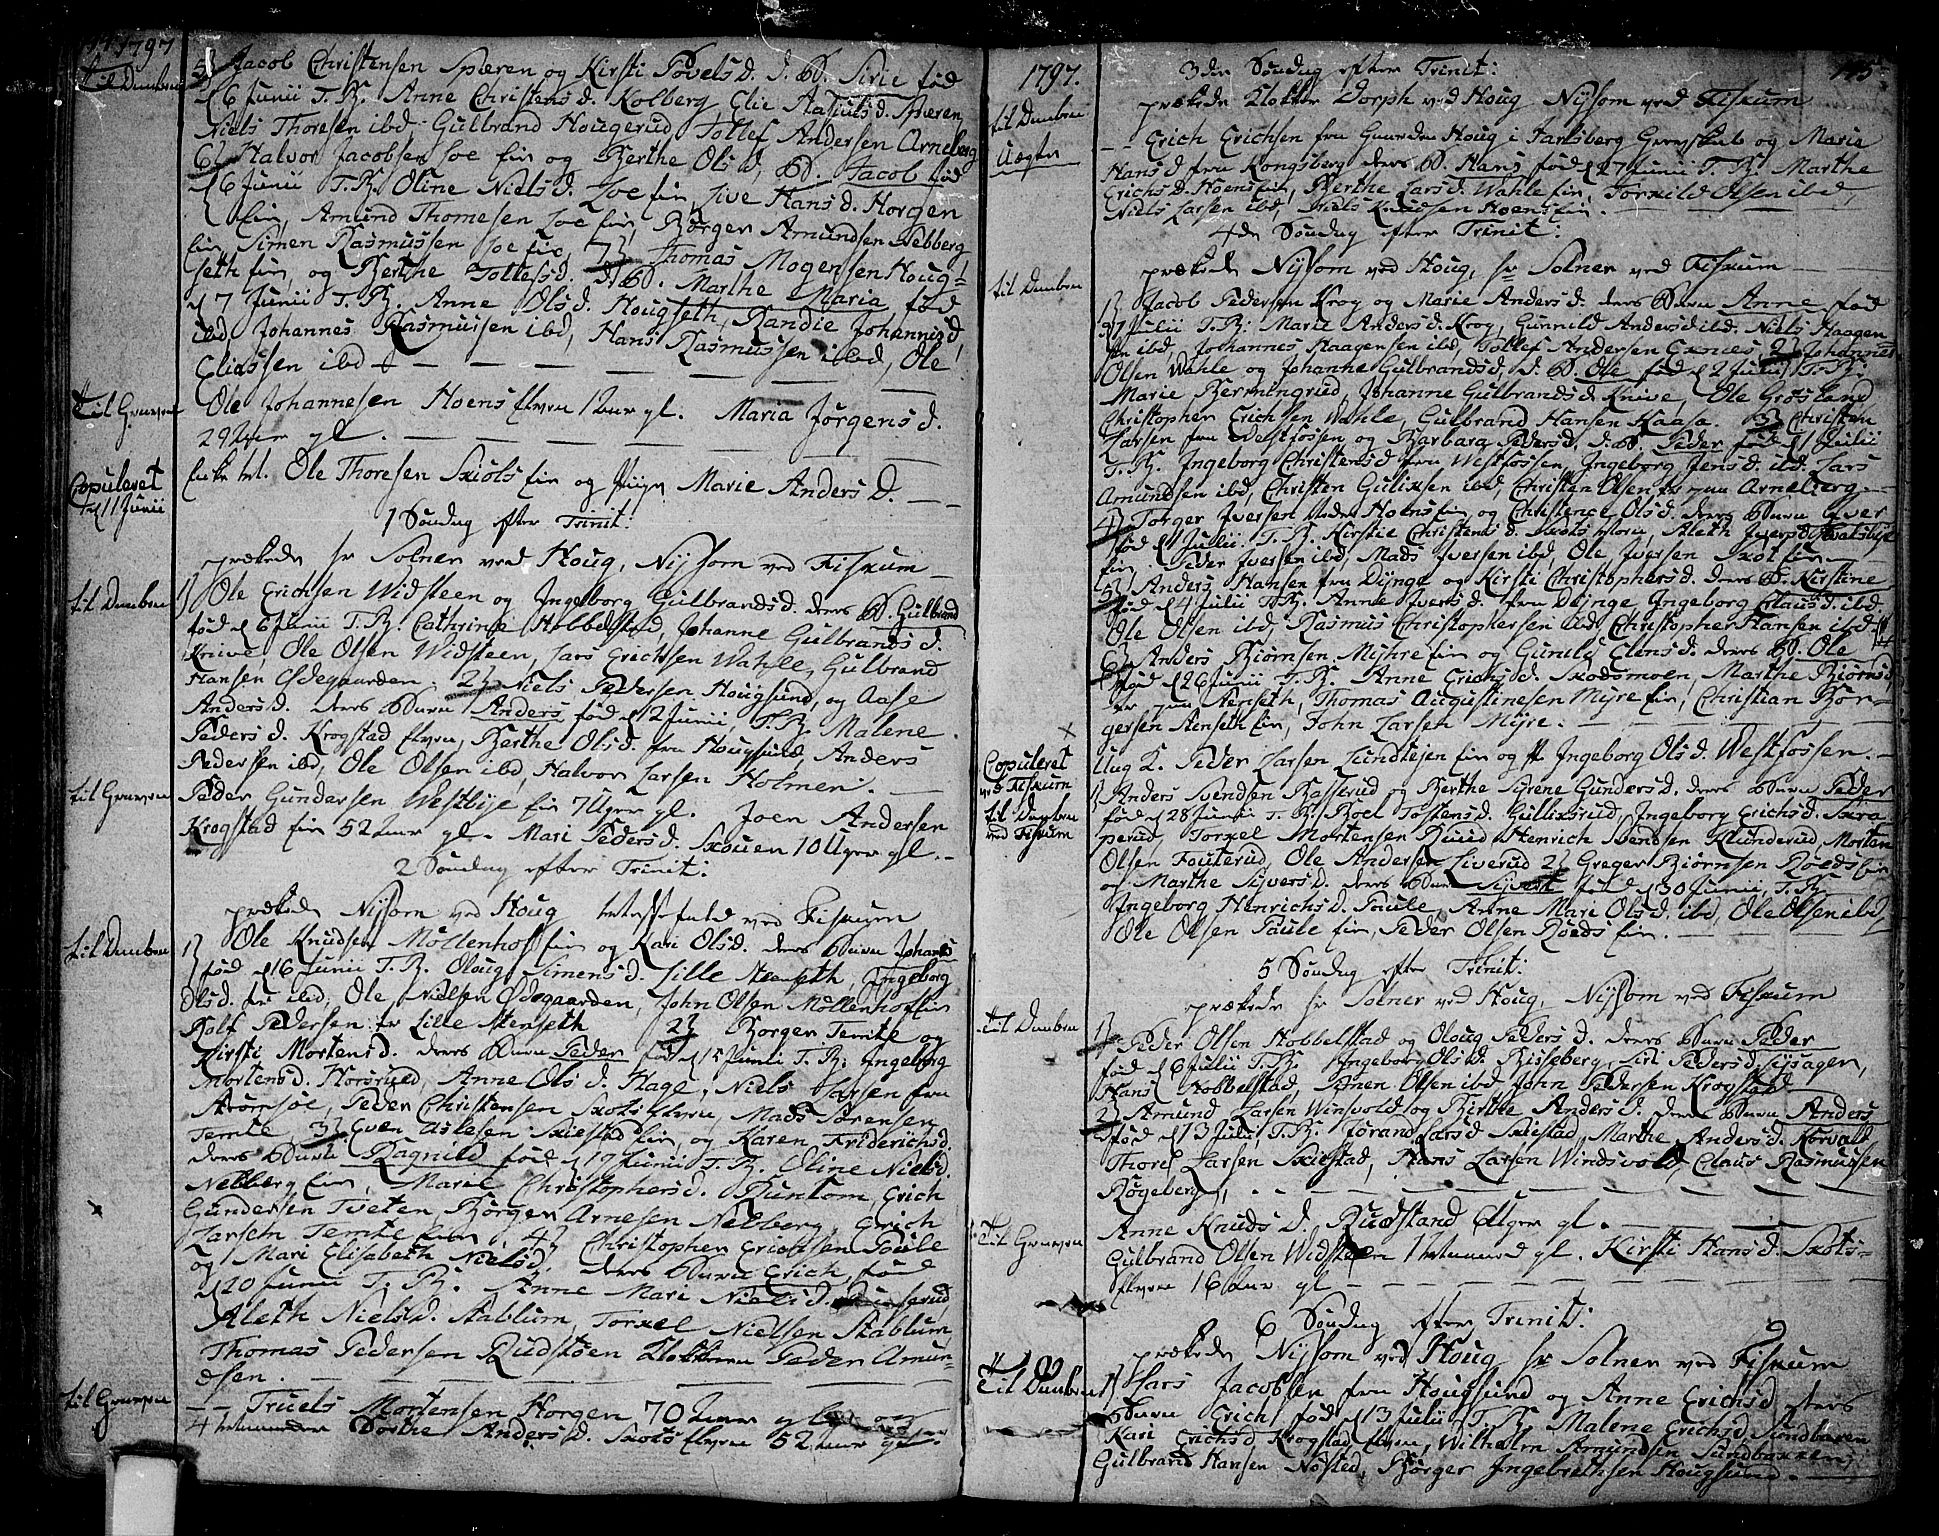 1797
til Daaben
5) Jacob Christensen Speren og Kirsti Povels d. d. B. Sirie fød
d 6 Junii T. B. Anne Christens d. Kolberg, Elie Paulus d. Speren,
Niels Thoresen ibd, Gulbrand Hougerud, Tollef Andersen Arneberg
6) Halvor Jacobsen Loe Eie og Berthe Ols d, B. Jacob fød
d 6 Junii T. B. Oline Niels d. Loe Eie, Sive Hans d. Horgen
Eie, Amund Thomesen Loe Eie, Börger Amundsen Nebberg
Eie, Simen Rasmussen Loe Eie, 7) Thomas Mogensen Houg-
seth Eie, og Berthe Tolles d. d. B. Marthe Maria fød
d 7 Junii T. B. Anne Ols d. Hougseth, Randie Johannis d,
ibd, Johannes Rasmussen ibd, Hans Rasmussen ibd, Ole
Eliassen ibd
Til Graven
Ole Johannesen Hoens Elven 1 Aar gl. Maria Jörgens d.
29 Aar gl.
Copuleret
d 11 Junii
Enke M. Ole Thoresen Skots Eie og Pige Marie Anders d.
1 Söndag efter Trinit:
prækede hr Solner ved Houg, Nyssom ved Fiskum
til Daaben
1) Ole Erichsen Widsteen og Ingeborg Gulbrands d. deres B. Gulbrand
fød d 6 Junii T. B. Cathrine Holbelstad, Johanne Gulbrands d.
Knive, Ole Olsen Widsteen, Lars Erichsen Wahle, Gulbrand
Hansen Ødegaarden. 2) Niels Pedersen Hougsund, og Aase
Anders d. deres Barn Anders fød d 2 Junii, T. B. Malene
Peders d. Krogstad Elven, Berthe Ols d. fra Hougsund, Anders
Pedersen ibd, Ole Olsen ibd, Halvor Larsen Holmen.
til Graven
Peder Gundersen Westbye Eie 7 Uger gl. Joen Andersen
Krogstad Eie 52 Aar gl. Mari Peders d. Skouen 10 Uger gl.
2 Söndag efter Trinit:
prækede Nyssom ved Houg Messefald ved Fiskum
til Daaben
1) Ole Knudsen Möllenhof Eie og Kari Ols d. deres Barn Johannes
fød d 16 Junii T. B. Oloug Simens d. Lille Stenseth, Ingeborg
Ols d. fr ibd, Ole Nielsen Ödegaarden, John Olsen Möllenhof Eie
Rolf Pedersen fr Lille Stenseth 2) Borger Temte og
Kirsti Mortens d. deres Barn Peder fød d 15 Junii T. B. Ingeborg
Mortens d. Horsrud, Anne Ols d. Hage, Niels Larsen fra
Strömsöe, Peder Christensen Skots Elven, Mads Sörensen
Temte 3) Even Aslesen Skiestad Eie, og Karen Friderichs d.
deres Barn Ragnild fød d 17 Junii T. B. Oline Niels d.
Nebberg Eie, Marie Christophers d. Buntom, Erich
Gundersen Tveten, Börger Arnesen Nebberg, Erich
Larsen Temte Eie, 4) Christopher Erichsen Foule
og Mari Elisabeth Niels d, deres Barn Erich, fød
d 20 Junii T. B. Anne Mari Niels d.
Aleth Niels d. Stablum, Torkel Nielsen Stablum,
Thomas Pedersen Rudstöen Klokkeren Peder Amun-
dsen.
til Graven
Truels Mortensen Horgen 70 Aar og
4 Maaneder Dorthe Anders d. Skots Elven 52 Aar gl.
1797.
115
3die Söndag efter Trinit:
prækede Klokker Dorph ved Houg Nyssom ved Fiskum
til Daaben
Uægte
Erich Erichsen fra Gaarden Houg i Jarlsberg Grevskab og Maria
Hans d fra Kongsberg deres B. Hans fød d 27 Junii T. B. Marthe
Erichs d. Hoens Eie, Berthe Lars d. Wahle Eie, Torkild Olsen ibd,
Niels Larsen ibd, Niels Knudsen Hoens Eie.
4de Söndag efter Trinit:
prækede Nyssom ved Houg, hr Solner ved Fiskum
til Daaben
1) Jacob Pedersen Krog og Marie Anders d. deres Barn Anne fød
d 1 Julii T. B: Marie Anders d. Krog, Gunnild Anders d ibd. Niels Haagen-
sen ibd, Johannes Haagensen ibd Tollef Andersen Exnes, 2) Johannes
Olsen Wahle og Johanne Gulbrands d, d. B. Ole fød d 2 Julii, T. B:
Marie Bermingrud, Johanne Gulbrands d Knive, Ole Grosland
Christopher Erichsen Wahle, Gulbrand Hansen Kaasa. 3) Christen
Larsen fra Westfossen og Barbara Peders d. d. B. Peder fød d 1 Julii
T. B. Ingeborg Christens d fra Westfossen, Ingeborg Jens d. ibd. Lars
Amundsen ibd, Christen Gulixsen ibd, Christen Olsen Arneberg.
4) Torger Iversen Hoens Eie og Christence Ols d. deres Barn Iver
fød d 1 Julii. T. B. Kirstie Christens d. Skots Moen, Aleth Ivers d
Eie, Peder Iversen ibd, Mads Iversen ibd, Ole Iversen Skot Eie
5) Anders Hansen fra Dynge og Kirsti Christophers d. deres B. Kirstine
fød d 4 Julii T. B. Anne Ivers d. fra Dynge, Ingeborg Claus d. ibd.
Ole Olsen ibd, Rasmus Christophersen ibd Christopher Hansen ibd
6) Anders Biörnsen Myhre Eie og Gunild Elens d. deres B. Ole
fød d 26 Junii T. B. Anne Erichs d. Skodsmoen, Marthe Biörns d
Stenseth, Thomas Augustinesen Myre Eie, Christian Bör-
gersen Stenseth Eie, John Larsen Myre.
Copuleret
ved Fiskum
Ung K. Peder Larsen Lundtejen Eie og P Ingeborg Ols d. Westfossen.
til Daaben
ved Fiskum
1) Anders Svendsen Baserud og Berthe Syrene Gunders d. deres Barn Peder
fød d 28 Junii T. B. Boel Tostens d. Gulliksrud, Ingeborg Erichs d. Skra-
perud, Torkel Mortensen Ruud Henrich Svendsen Klunderud, Morten
Olsen Fouterud, Ole Andersen Tiverud 2) Greger Biörnsen Roeds Eie
og Marthe Sivers d. deres Barn Sivert fød d 30 Junii, T. B.
Ingeborg Henrichs d. Faule, Anne Mari Ols d. ibd, Ole Olsen ibd,
Ole Olsen Faule Eie, Peder Olsen Roeds Eie.
5 Söndag efter Trinit:
prækede hr Solner ved Houg, Nyssom ved Fiskum
Til Daaben
1) Peder Olsen Hobbelstad og Oloug Peders d. deres Barn Peder
fød d 6 Julii T. B. Ingeborg Ols d. Bisseberg, Siri Peders d Sysagen,
Hans Hobbelstad, Simen Olsen ibd, John Pedersen Krogstad
2) Amund Larsen Winsvold og Birthe Anders d. deres Barn Anders
fød d 13 Julii T. B. Jorand Lars d Skiestad, Marthe Anders d. Korvald
Thorel Larsen Skiestad, Hans Larsen Windsvold, Claus Rasmussen
Bögeberg,
Til Graven
Anne Knuds d. Rudstand 6 Uger gl.
Gulbrand Olsen Widsteen 1 Maaned gl. Kirsti Hans d. Skots-
Elven 16 Aar gl
6 Söndag efter Trinit:
prækede Nyssom ved Houg hr Solner ved Fiskum
Til Daaben
1) Lars Jacobsen fra Hougsund og Anne Erichs d deres
Barn Erich fød d 13 Julii T. B. Malene Erichs d, Sundbakken
Kari Erichs d, Krogstad Elven, Wilhelm Amundsen Sundbakken,
Gulbrand Hansen Nösted, Börger Ingebrethsen Hougsund.